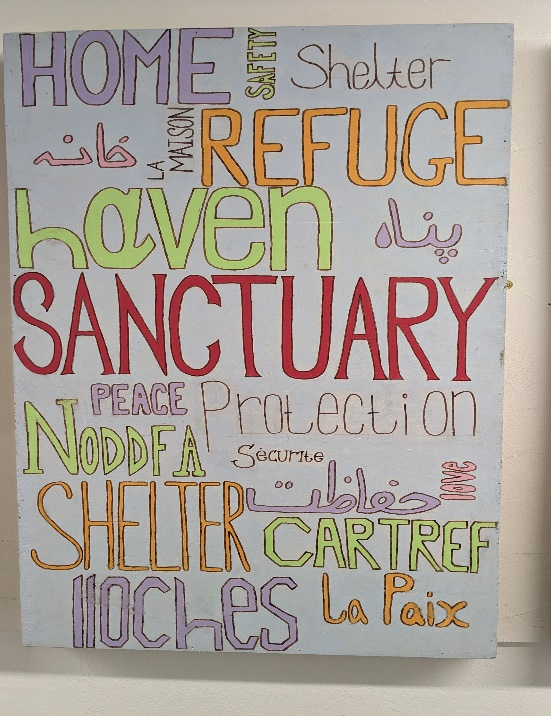 HOME SAFETY Shelter
خانه LA MAISON REFUGE
haven پناه
SANCTUARY
PEACE Protection
NODDFA Sécurité love
SHELTER حفاظت
CARTREF
llOCHES La Paix